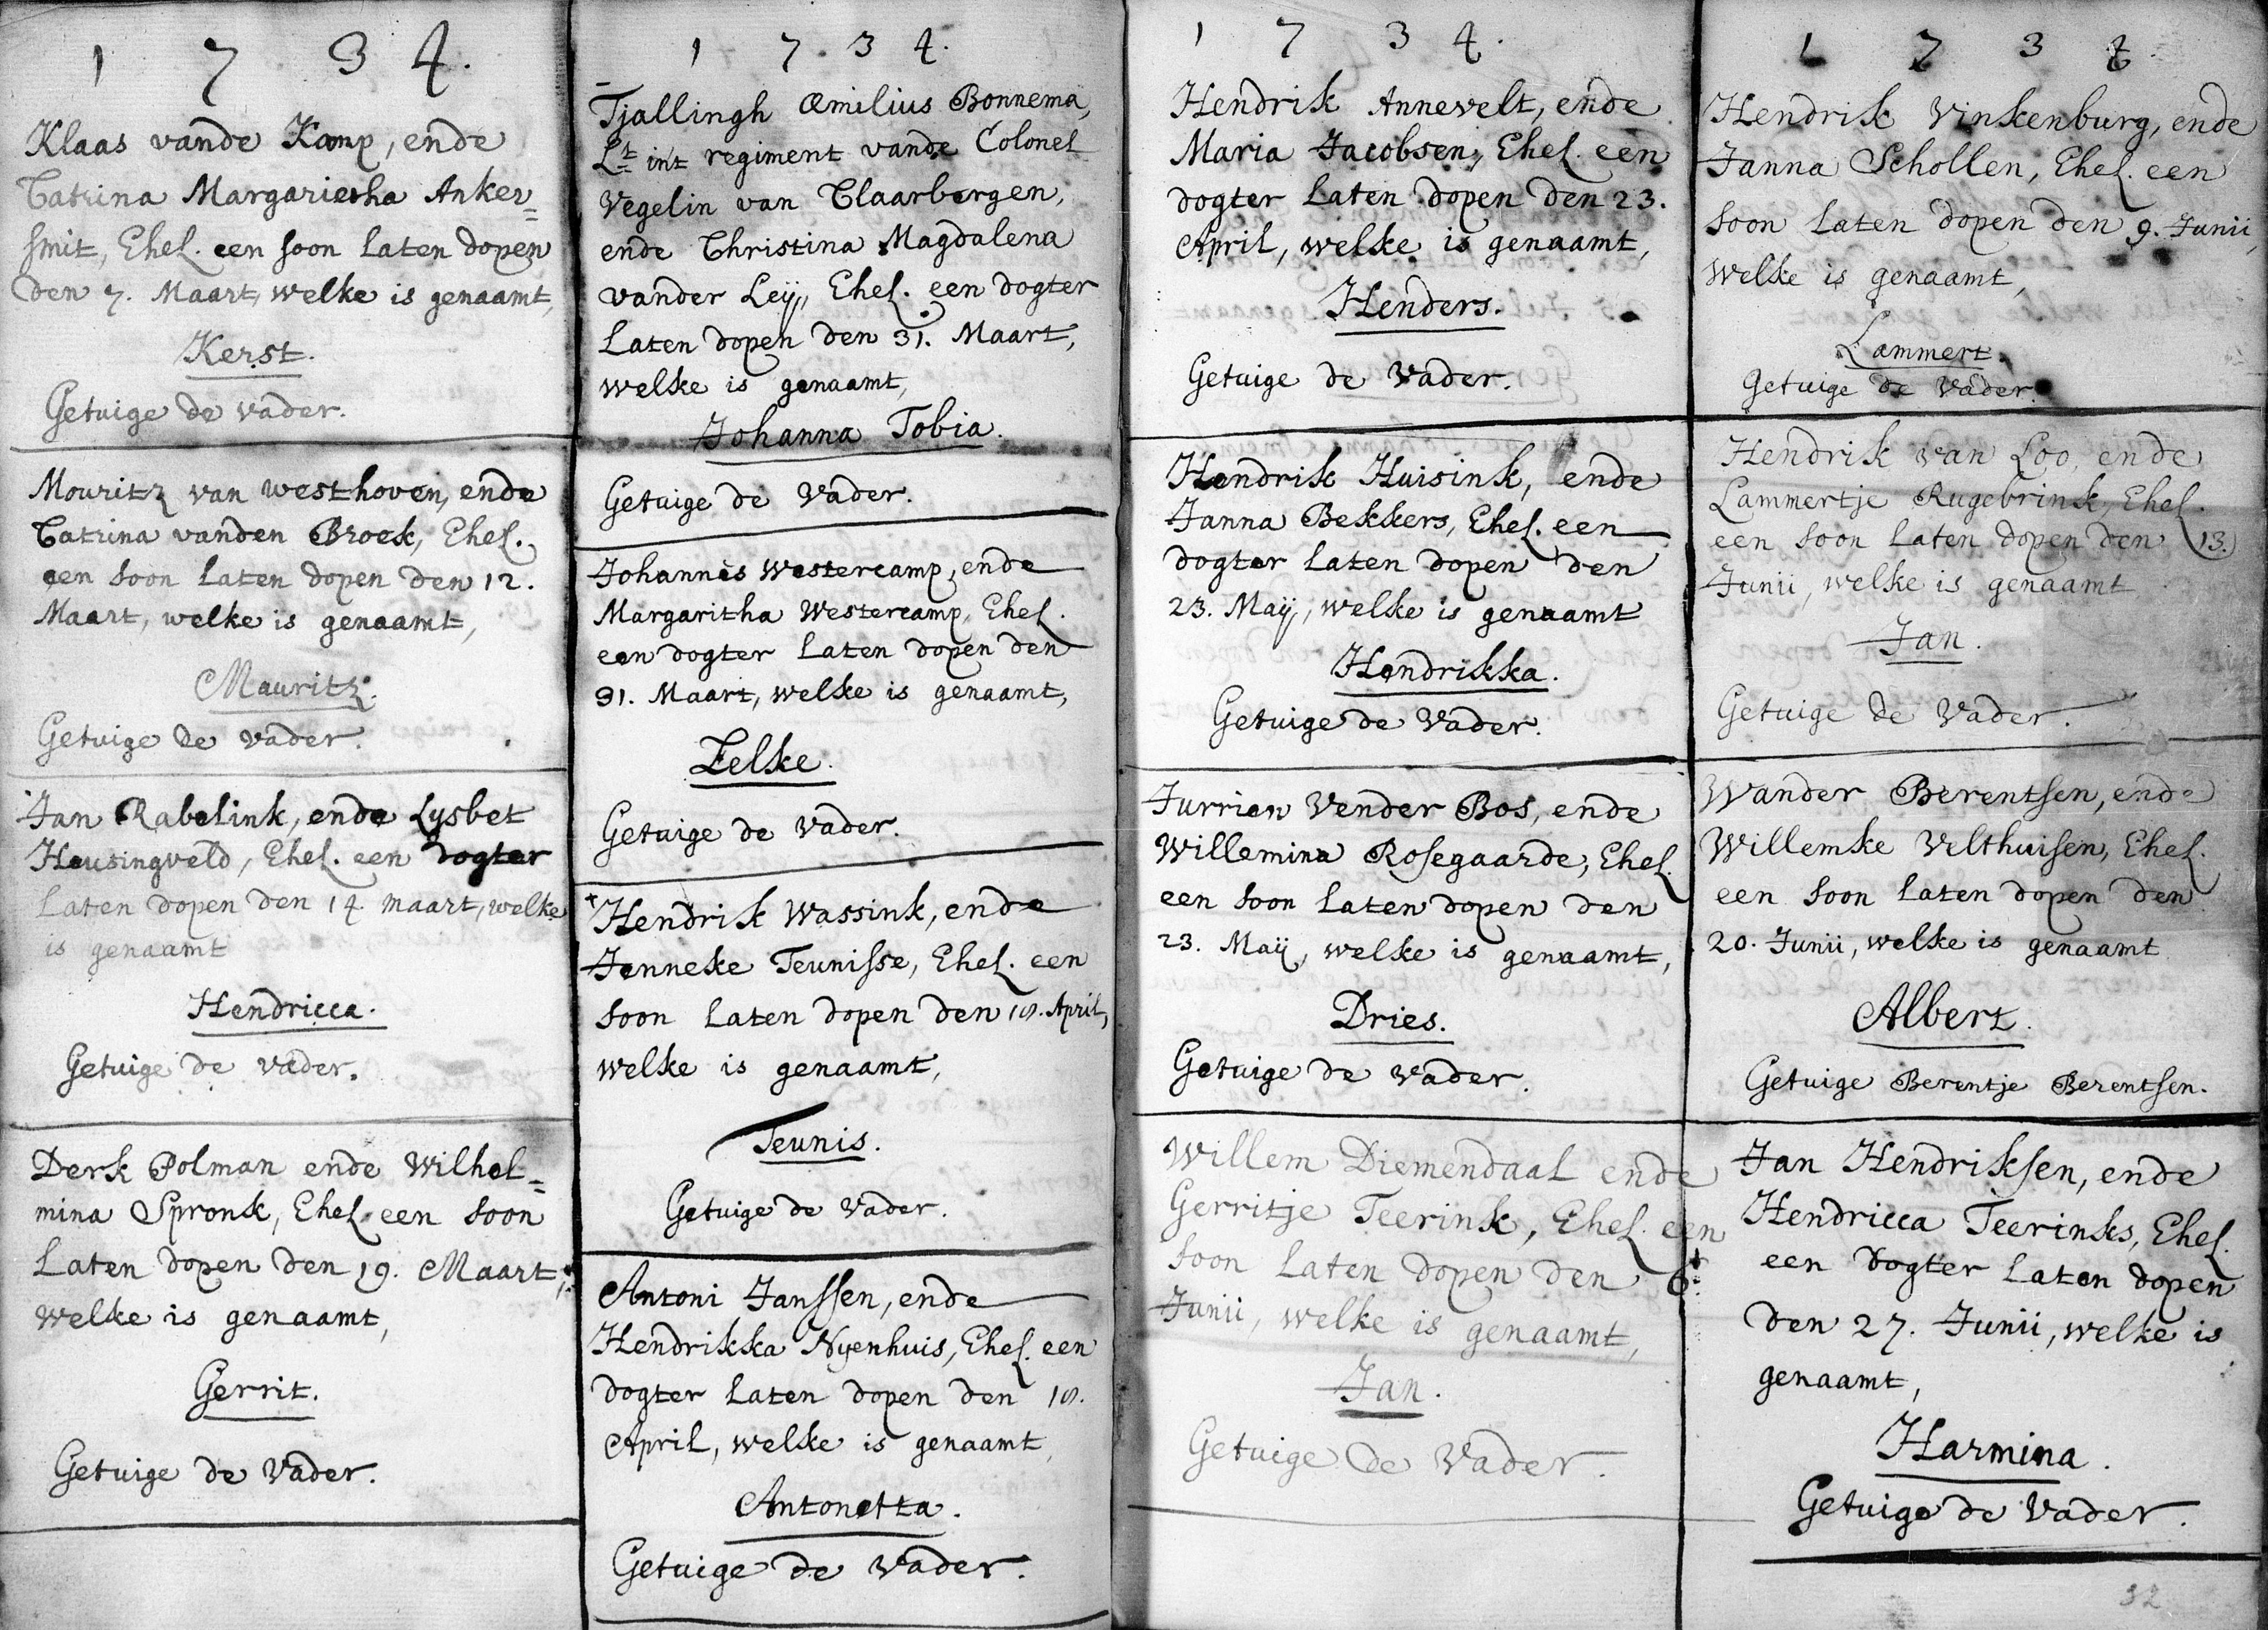 1 7 3 4.
Klaas vande Kamp, ende
Catrina Margarietha Anker=
smit, Ehel. een soon laten dopen
den 7. Maart, welke is genaamt,
Kerst.
Getuige de vader.
Mouritz van westhoven, ende
Catrina vanden Broek, Ehel.
een soon laten dopen den 12.
Maart, welke is genaamt,
Mauritz.
Getuige de vader.
Jan Rabelink, ende Lysbet
Heusingveld, Ehel. een dogter
laten dopen den 14 maart, welke
is genaamt
Hendricca.
Getuige de vader.
Derk Polman ende Wilhel=
mina Spronk, Ehel. een soon
laten dopen den 19. Maart,
welke is genaamt,
Gerrit.
Getuige de Vader.
1 7 3 4.
Tjallingh Æmilius Bonnema,
Lt int regiment vande Colonel
Vegelin van Claarbergen,
ende Christina Magdalena
vander Leij, Ehel. een dogter
laten dopen den 31. Maart,
welke is genaamt,
Johanna Tobia.
Getuige de Vader.
Johannes Westercamp, ende
Margaritha Westercamp, Ehel.
een dogter laten dopen den
31. Maart, welke is genaamt,
Zelke.
Getuige de vader.
Hendrik Wassink, ende
Jenneke Teunisse, Ehel. een
soon laten dopen den 18. April,
welke is genaamt,
Teunis.
Getuige de Vader.
Antoni Janssen, ende
Hendrikka Nyenhuis, Ehel. een
dogter laten dopen den 18.
April, welke is genaamt,
Antonetta.
Getuige de Vader.
1 7 3 4.
Hendrik Annevelt, ende
Maria Jacobsen, Ehel. een
dogter laten dopen den 23.
April, welke is genaamt,
Henders.
Getuige de Vader.
Hendrik Huisink, ende
Janna Bekkers, Ehel. een
dogter laten dopen den
23. Maij, welke is genaamt
Hendrikka.
Getuige de Vader.
Jurrien Vender Bos, ende
Willemina Rosegaarde, Ehel.
een soon laten dopen den
23. Maij, welke is genaamt,
Dries.
Getuige de vader.
Willem Diemendaal ende
Gerritje Teerink, Ehel. een
soon laten dopen den 6.
Junii, welke is genaamt,
Jan.
Getuige de Vader.
1 7 3 4
Hendrik Vinkenburg, ende
Janna Schollen, Ehel. een
soon laten dopen den 9. Junii,
welke is genaamt,
Lammert.
Getuige de Vader.
Hendrik van Loo, ende
Lammertje Rugebrink, Ehel.
een soon laten dopen den 13.
Junii, welke is genaamt
Jan.
Getuige de Vader.
Wander Berentsen, ende
Willemke Velthuisen, Ehel.
een soon laten dopen den
20. Junii, welke is genaamt
Albert.
Getuige Berentje Berentsen.
Jan Hendriksen, ende
Hendricca Teerinks, Ehel.
een dogter laten dopen
den 27. Junii, welke is
genaamt,
Harmina.
Getuige de Vader.
32